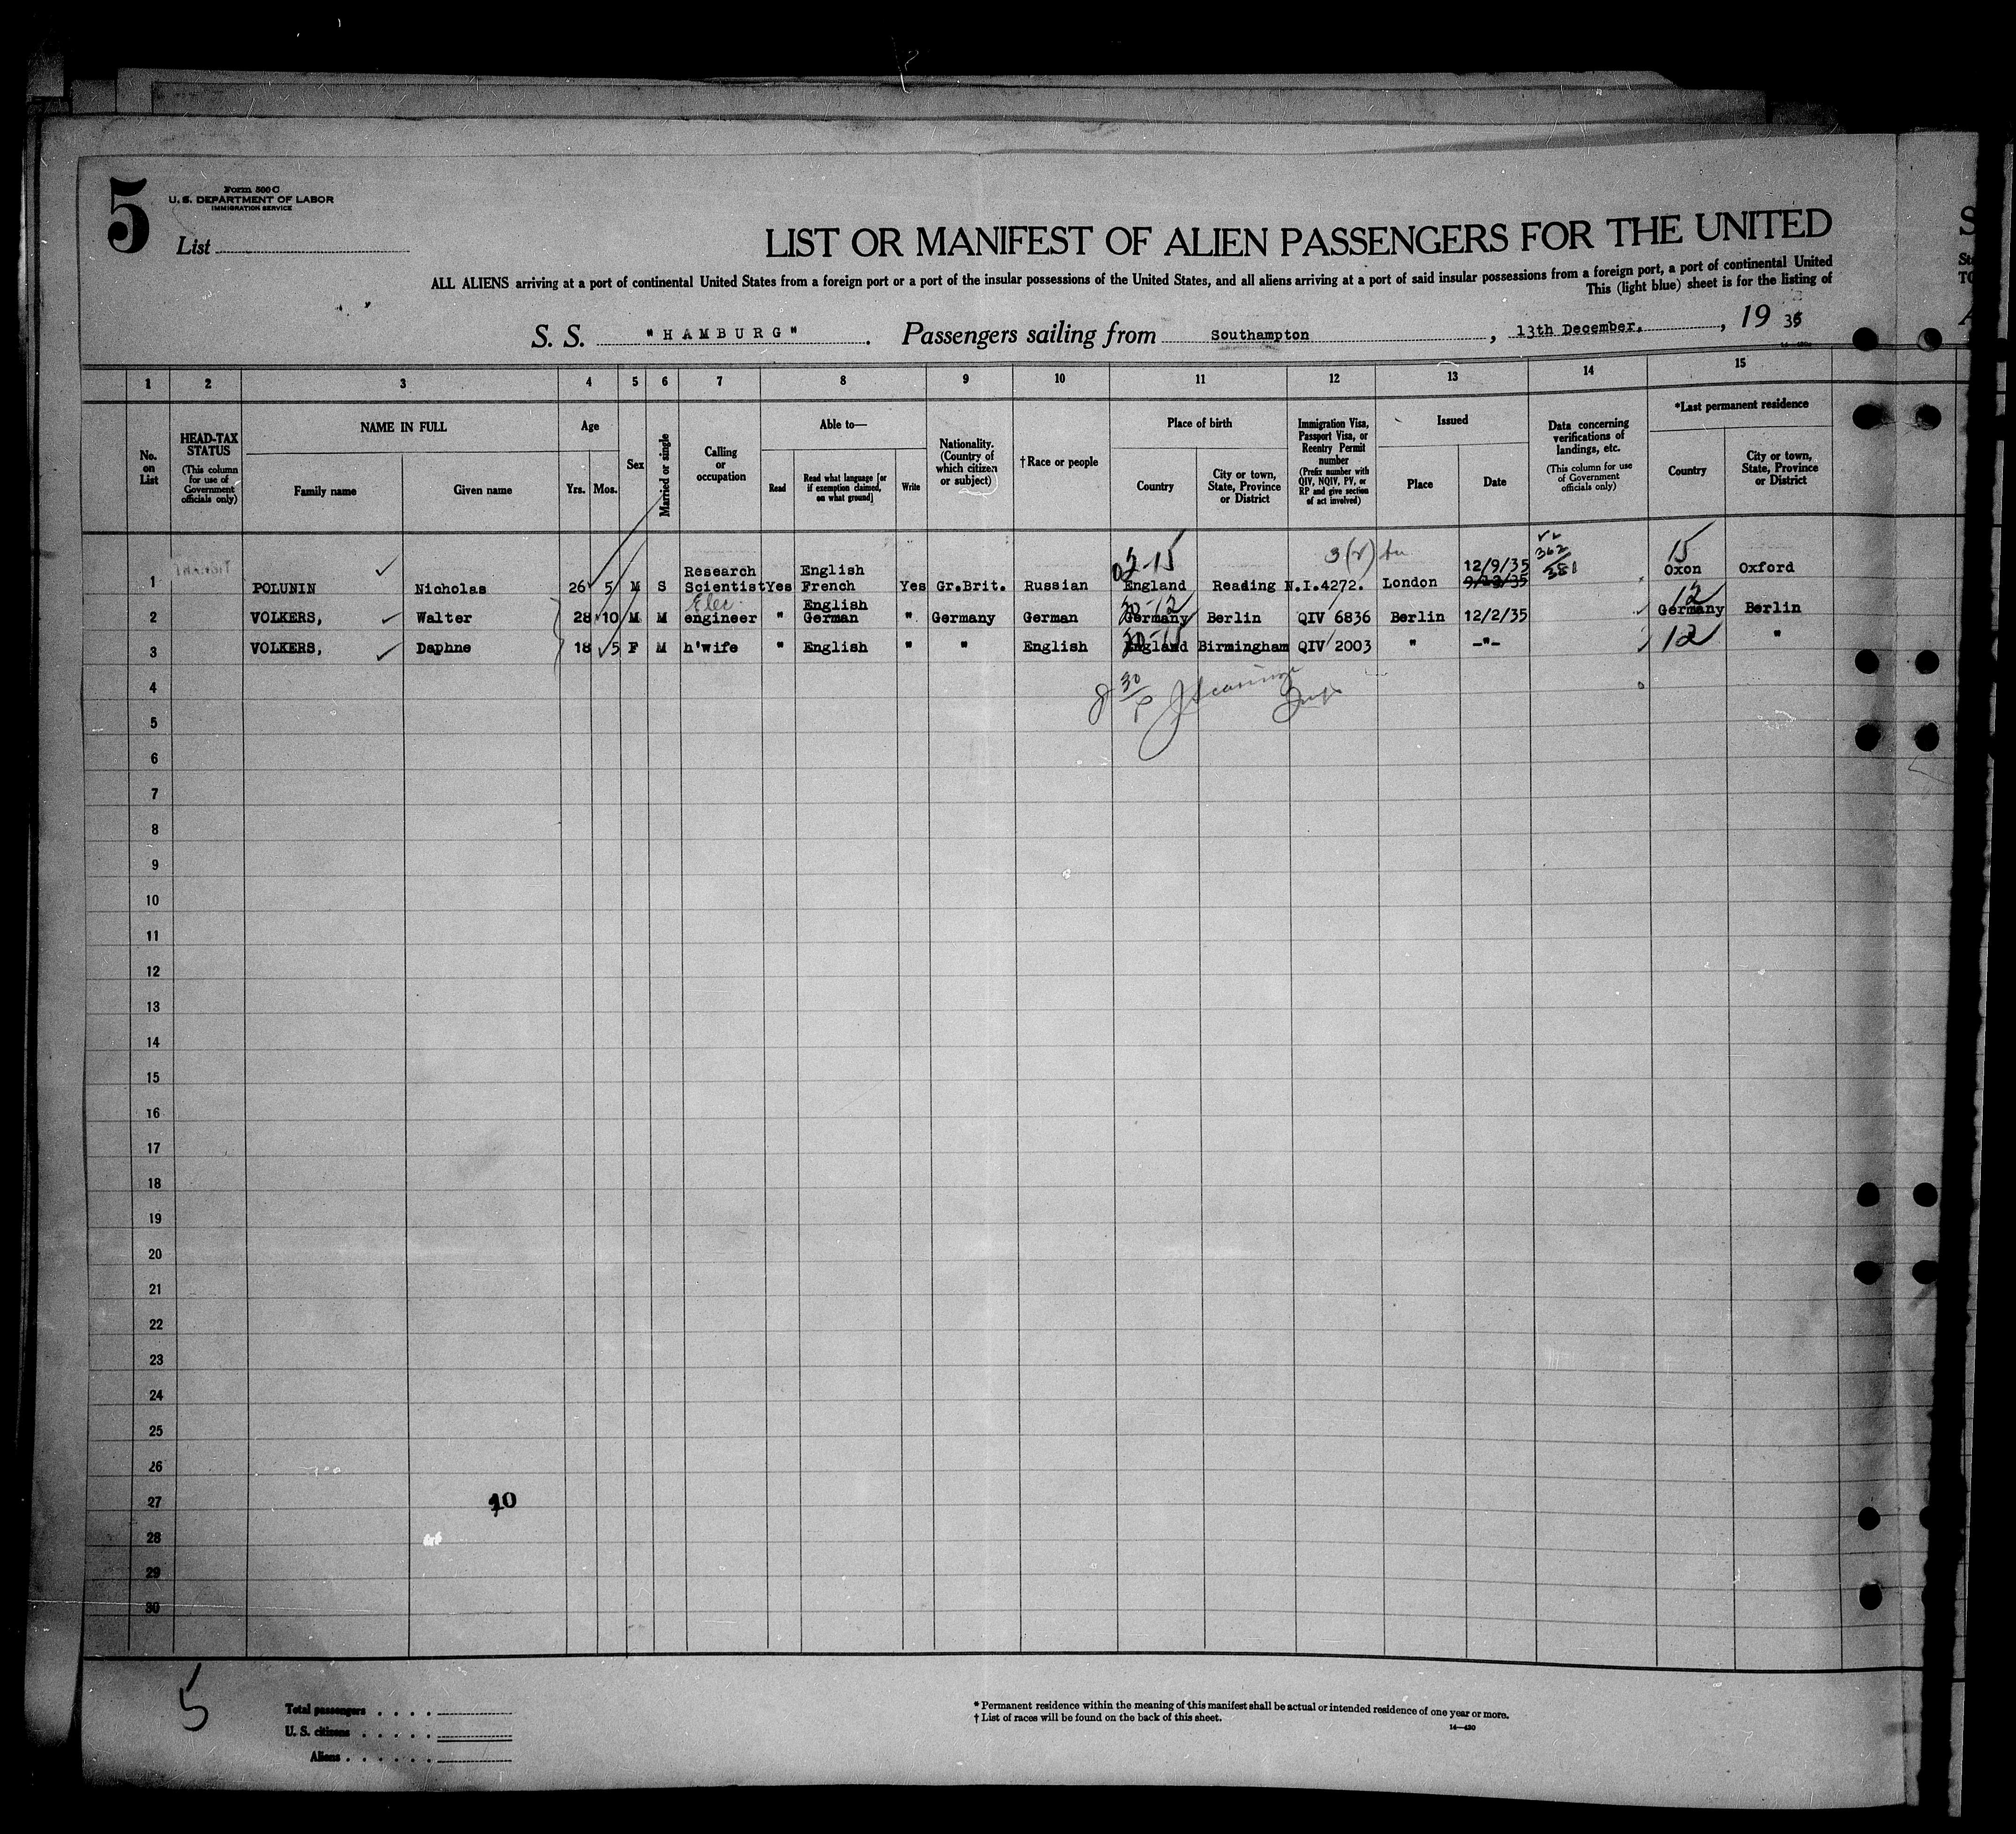 5
Form 500 C
U. S. DEPARTMENT OF LABOR
IMMIGRATION SERVICE
List
LIST OR MANIFEST OF ALIEN PASSENGERS FOR THE UNITED
ALL ALIENS arriving at a port of continental United States from a foreign port or a port of the insular possessions of the United States, and all aliens arriving at a port of said insular possessions from a foreign port, a port of continental United
This (light blue) sheet is for the listing of
S. S. "HAMBURG". Passengers sailing from Southampton, 13th December., 19 35
1 2 3 4 5 6 7 8 9 10 11 12 13 14 15
No. on List
HEAD-TAX STATUS (This column for use of Government officials only)
NAME IN FULL
Family name
Given name
Age
Yrs. Mos.
Sex
Married or single
Calling or occupation
Able to—
Read
Read what language [or if exemption claimed, on what ground]
Write
Nationality. (Country of which citizen or subject)
†Race or people
Place of birth
Country
City or town, State, Province or District
Immigration Visa, Passport Visa, or Reentry Permit number (Prefix number with QIV, NQIV, PV, or RP and give section of act involved)
Issued
Place
Date
Data concerning verifications of landings, etc. (This column for use of Government officials only)
*Last permanent residence
Country
City or town, State, Province or District
02-15 3(v) 362 381 15
1 POLUNIN Nicholas 26 5 M S Research Scientist Yes English French Yes Gr.Brit. Russian England Reading N.I.4272. London 12/9/35 9/12/35 Oxon Oxford
Elec 30-12 12
2 VOLKERS, Walter 28 10 M M engineer " English German " Germany German Germany Berlin QIV 6836 Berlin 12/2/35 Germany Berlin
30-15 12
3 VOLKERS, Daphne 18 5 F M h'wife " English " " English England Birmingham QIV 2003 " -"- "
4
5
6
7
8
9
10
11
12
13
14
15
16
17
18
19
20
21
22
23
24
25
26
27
28
29
30
5
Total passengers
U. S. citizens
Aliens
* Permanent residence within the meaning of this manifest shall be actual or intended residence of one year or more.
† List of races will be found on the back of this sheet.
14—430